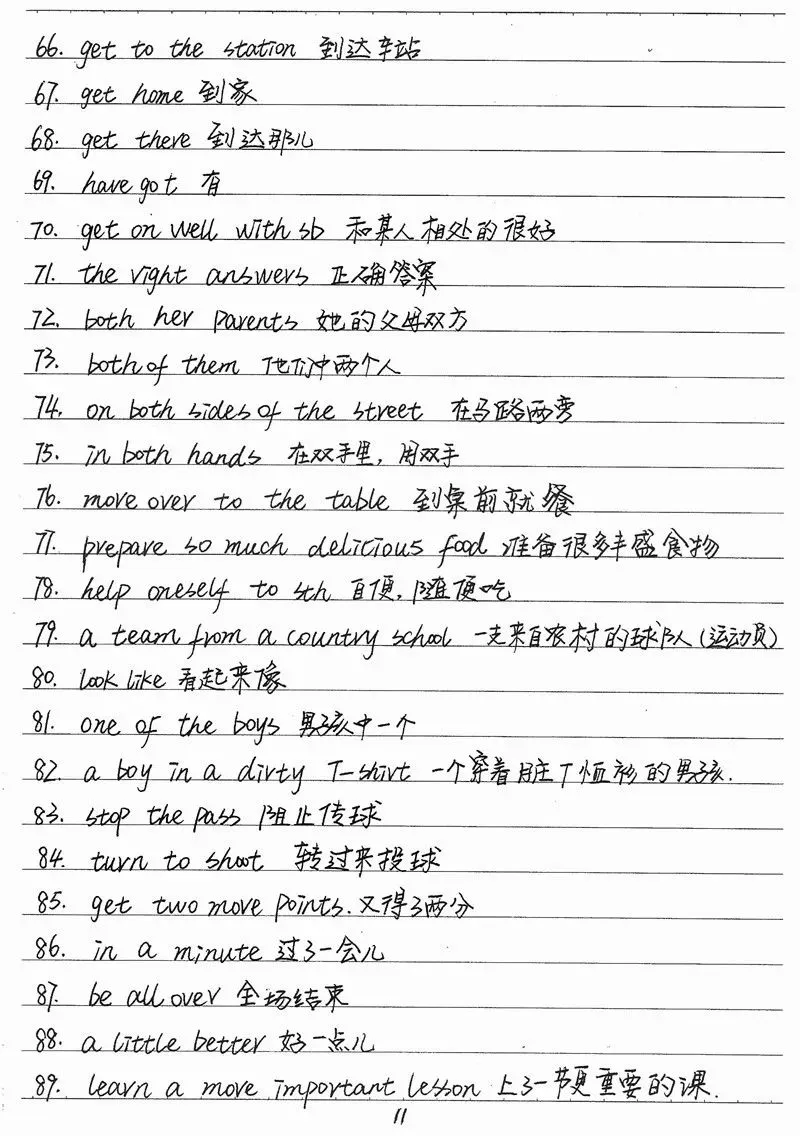 66. get to the station 到达车站
67. get home 到家
68. get there 到达那儿
69. have got 有
70. get on well with sb 和某人相处的很好
71. the right answers 正确答案
72. both her parents 她的父母双方
73. both of them 他们中两个人
74. on both sides of the street 在马路两旁
75. in both hands 在双手里,用双手
76. move over to the table 到桌前就餐
77. prepare so much delicious food 准备很多丰盛食物
78. help oneself to sth 自便,随便吃
79. a team from a country school 一支来自农村的球队(运动员)
80. look like 看起来像
81. one of the boys 男孩中一个
82. a boy in a dirty T-shirt 一个穿着脏T恤衫的男孩.
83. stop the pass 阻止传球
84. turn to shoot 转过来投球
85. get two more points. 又得了两分
86. in a minute 过了一会儿
87. be all over 全场结束
88. a little better 好一点儿
89. learn a more important lesson 上了一节更重要的课.
11